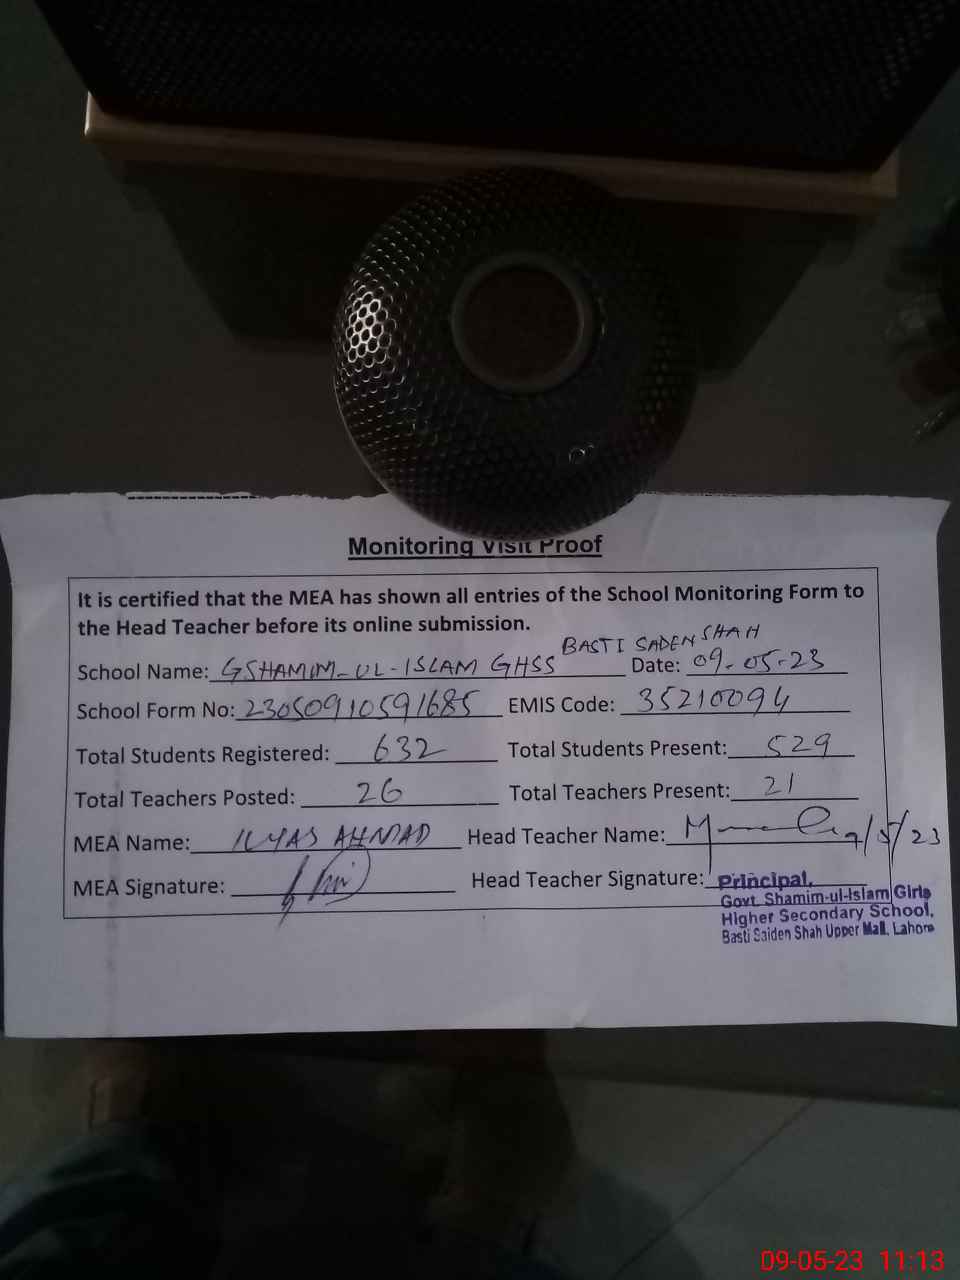 Monitoring Visit Proof
It is certified that the MEA has shown all entries of the School Monitoring Form to
the Head Teacher before its online submission.
BASTI SADEN SHAH
School Name: GSHAMIM-UL-ISLAM GHSS Date: 09-05-23
School Form No: 23050910591685 EMIS Code: 35210094
Total Students Registered: 632 Total Students Present: 529
Total Teachers Posted: 26 Total Teachers Present: 21
MEA Name: ILYAS AHMAD Head Teacher Name: 9/5/23
MEA Signature: Head Teacher Signature:
Principal,
Govt. Shamim-ul-Islam Girls
Higher Secondary School,
Basti Saiden Shah Upper Mall, Lahore
09-05-23 11:13